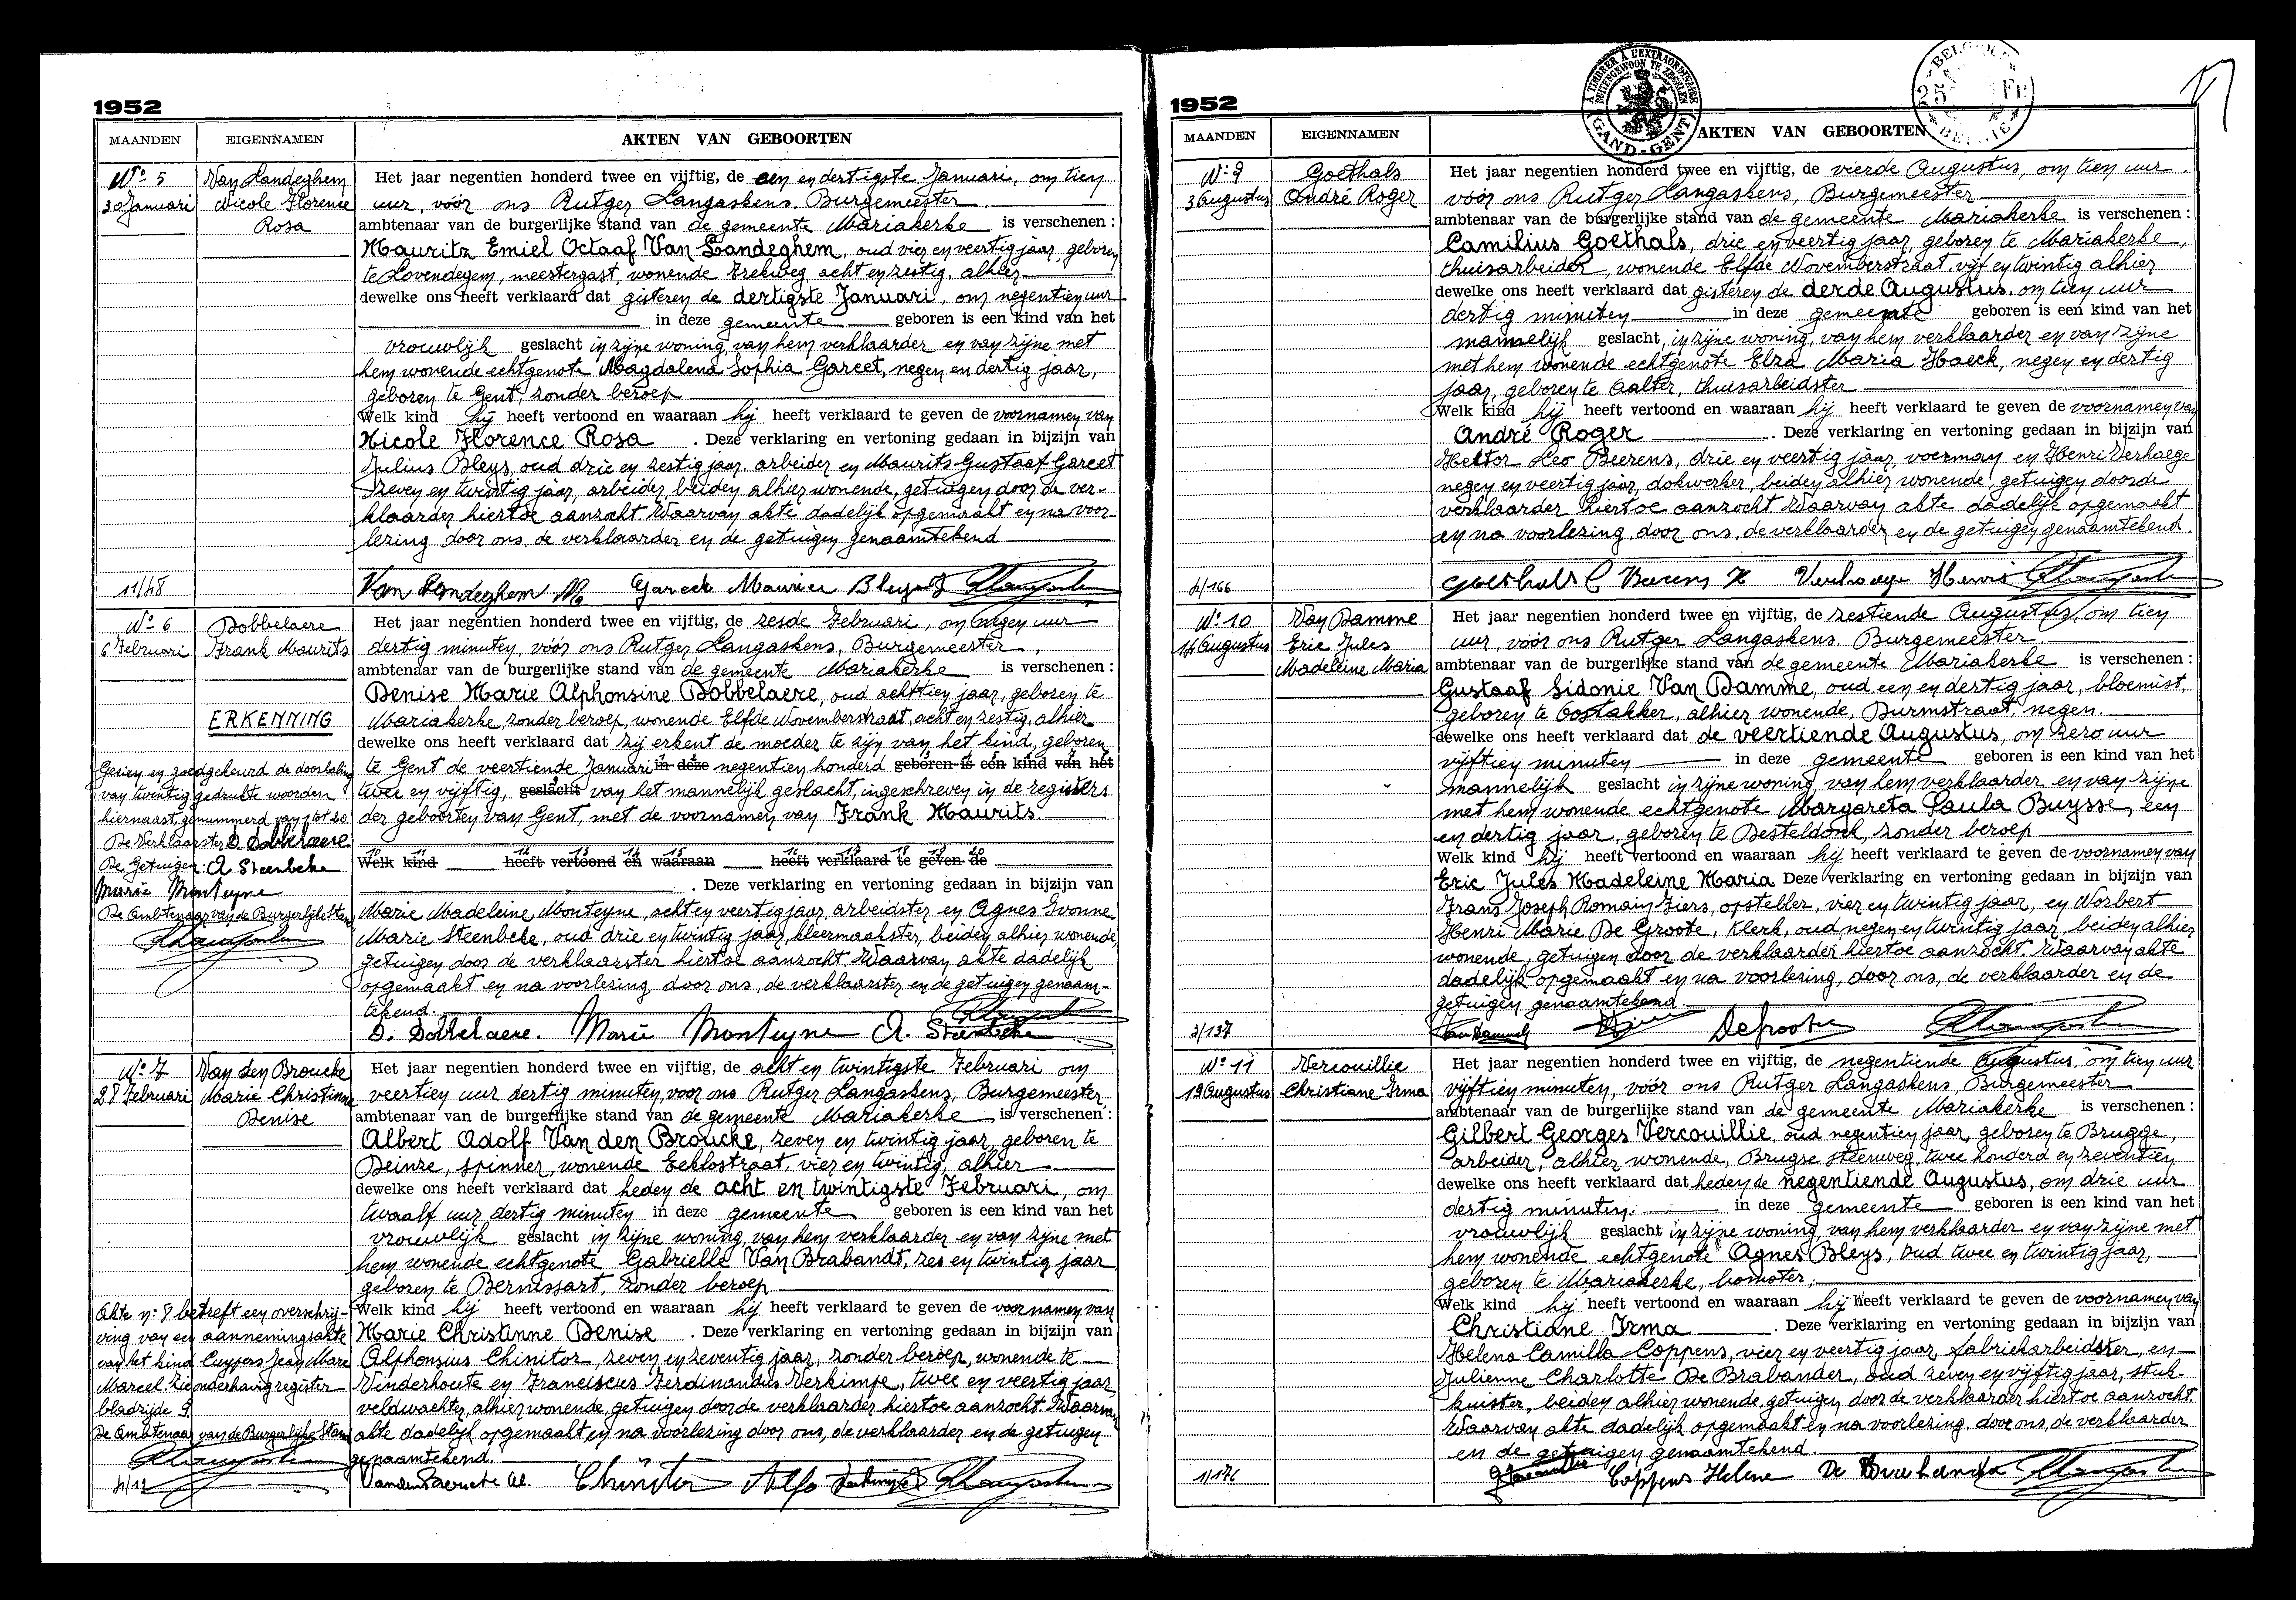 1952
MAANDEN EIGENNAMEN AKTEN VAN GEBOORTEN
N° 5
30 Januari
Van Landeghem
Nicole Florence
Rosa
Het jaar negentien honderd twee en vijftig, de een en dertigste Januari, om tien
uur, vóór ons Rutger Langaskens, Burgemeester
ambtenaar van de burgerlijke stand van de gemeente Mariakerke is verschenen:
Mauritz Emiel Octaaf Van Landeghem, oud vier en veertig jaar, geboren
te Lovendegem, meestergast, wonende Trekweg, acht en zestig, alhier
dewelke ons heeft verklaard dat gisteren de dertigste Januari, om negentien uur
in deze gemeente geboren is een kind van het
vrouwlijk geslacht in zijne woning, van hem verklaarder en van zijne met
hem wonende echtgenote Magdalena Sophia Gareet, negen en dertig jaar,
geboren te Gent, zonder beroep
Welk kind hij heeft vertoond en waaraan hij heeft verklaard te geven de voornamen van
Nicole Florence Rosa. Deze verklaring en vertoning gedaan in bijzijn van
Julius Bleys, oud drie en zestig jaar, arbeider en Maurits Gustaaf Gareet
zeven en twintig jaar, arbeider, beiden alhier wonende, getuigen door de ver-
klaarder hiertoe aanzocht. Waarvan akte dadelijk opgemaakt en na voor-
lezing door ons, de verklaarder en de getuigen genaamtekend
11/48
Van Landeghem M Gareet Maurice Bleys J
N° 6
6 Februari
Dobbelaere
Frank Maurits
ERKENNING
Het jaar negentien honderd twee en vijftig, de zesde Februari, om negen uur
dertig minuten, vóór ons Rutger Langaskens, Burgemeester,
ambtenaar van de burgerlijke stand van de gemeente Mariakerke is verschenen:
Denise Marie Alphonsine Dobbelaere, oud achttien jaar, geboren te
Mariakerke, zonder beroep, wonende Elfde Novemberstraat, acht en zestig, alhier
dewelke ons heeft verklaard dat zij erkent de moeder te zijn van het kind, geboren
te Gent de veertiende Januari in deze negentien honderd geboren is een kind van het
twee en vijftig, geslacht van het mannelijk geslacht, ingeschreven in de registers
der geboorten van Gent, met de voornamen van Frank Maurits.
10 11 12 13 14 15 16 17 18 19 20
Welk kind heeft vertoond en waaraan heeft verklaard te geven de
. Deze verklaring en vertoning gedaan in bijzijn van
Marie Madeleine Monteyne, acht en veertig jaar, arbeidster en Agnes Yvonne
Marie Steenbeke, oud drie en twintig jaar, kleermaakster, beiden alhier wonende,
getuigen door de verklaarster hiertoe aanzocht. Waarvan akte dadelijk
opgemaakt en na voorlezing door ons, de verklaarster en de getuigen genaam-
tekend.
D. Dobbelaere. Marie Monteyne A. Steenbeke
Gezien en goedgekeurd de doorhaling
van twintig gedrukte woorden
hiernaast genummerd van 1 tot 20
De Verklaarster D. Dobbelaere
De Getuigen: A Steenbeke
Marie Monteyne
De Ambtenaar van de Burgerlijke Stand
N° 7
28 Februari
Van den Broucke
Marie Christinne
Denise
Het jaar negentien honderd twee en vijftig, de acht en twintigste Februari om
veertien uur dertig minuten voor ons Rutger Langaskens, Burgemeester
ambtenaar van de burgerlijke stand van de gemeente Mariakerke is verschenen:
Albert Adolf Van den Broucke, zeven en twintig jaar, geboren te
Deinze, spinner, wonende Eeklostraat, vier en twintig, alhier
dewelke ons heeft verklaard dat heden de acht en twintigste Februari, om
twaalf uur dertig minuten in deze gemeente geboren is een kind van het
vrouwlijk geslacht in zijne woning, van hem verklaarder en van zijne met
hem wonende echtgenote Gabrielle Van Brabandt, zes en twintig jaar
geboren te Bernissart, zonder beroep
Welk kind hij heeft vertoond en waaraan hij heeft verklaard te geven de voornamen van
Marie Christinne Denise. Deze verklaring en vertoning gedaan in bijzijn van
Alphonsius Chinitor, zeven en zeventig jaar, zonder beroep, wonende te
Vinderhoute en Franciscus Ferdinandus Verkimpe, twee en veertig jaar
veldwachter, alhier wonende, getuigen door de verklaarder hiertoe aanzocht. Waarvan
akte dadelijk opgemaakt en na voorlezing door ons, de verklaarder en de getuigen
genaamtekend.
Chinitor Alfo
Akte n: 8 betreft een overschrij-
ving van een aannemingsakte
van het kind Cuypers Jean Marc
Marcel Zie onderhavig register
bladzijde 9.
De Ambtenaar van de Burgerlijke Stand
4/12
1952
BELGIQUE 25 FR BELGIE
A TIMBRER A L'EXTRAORDINAIRE
BUITENGEWOON TE ZEGELEN
GAND-GENT
MAANDEN EIGENNAMEN AKTEN VAN GEBOORTEN
N° 9
3 Augustus
Goethals
André Roger
Het jaar negentien honderd twee en vijftig, de vierde Augustus, om tien uur.
vóór ons Rutger Langaskens, Burgemeester
ambtenaar van de burgerlijke stand van de gemeente Mariakerke is verschenen:
Camilius Goethals, drie en veertig jaar, geboren te Mariakerke,
thuisarbeider, wonende Elfde Novemberstraat, vijf en twintig alhier
dewelke ons heeft verklaard dat gisteren de derde Augustus, om tien uur
dertig minuten in deze gemeente geboren is een kind van het
mannelijk geslacht, in zijne woning, van hem verklaarder en van zijne
met hem wonende echtgenote Elza Maria Haeck, negen en dertig
jaar, geboren te Aalter, thuisarbeidster
Welk kind hij heeft vertoond en waaraan hij heeft verklaard te geven de voornamen van
André Roger. Deze verklaring en vertoning gedaan in bijzijn van
Hektor Leo Beerens, drie en veertig jaar, voerman en Henri Verhaege
negen en veertig jaar, dokwerker, beiden alhier wonende, getuigen door de
verklaarder hiertoe aanzocht. Waarvan akte dadelijk opgemaakt
en na voorlezing, door ons, de verklaarder en de getuigen genaamtekend.
4/166
Goethals C Beerens H Verhaege Henri
N° 10
14 Augustus
Van Damme
Eric Jules
Madeleine Maria
Het jaar negentien honderd twee en vijftig, de zestiende Augustus, om tien
uur, vóór ons Rutger Langaskens, Burgemeester
ambtenaar van de burgerlijke stand van de gemeente Mariakerke is verschenen:
Gustaaf Sidonie Van Damme, oud een en dertig jaar, bloemist,
geboren te Oostakker, alhier wonende, Durmstraat, negen.
dewelke ons heeft verklaard dat de veertiende Augustus, om zero uur
vijftien minuten in deze gemeente geboren is een kind van het
mannelijk geslacht in zijne woning, van hem verklaarder en van zijne
met hem wonende echtgenote Margareta Paula Buysse, een
en dertig jaar, geboren te Desteldonk, zonder beroep
Welk kind hij heeft vertoond en waaraan hij heeft verklaard te geven de voornamen van
Eric Jules Madeleine Maria Deze verklaring en vertoning gedaan in bijzijn van
Frans Joseph Romain Ziers, opsteller, vier en twintig jaar, en Norbert
Henri Marie De Groote, klerk, oud negen en twintig jaar, beiden alhier
wonende, getuigen door de verklaarder hiertoe aanzocht. Waarvan akte
dadelijk opgemaakt en na voorlezing, door ons, de verklaarder en de
getuigen genaamtekend
3/137
VanDamme Degroote
N° 11
19 Augustus
Vercouillie
Christiane Irma
Het jaar negentien honderd twee en vijftig, de negentiende Augustus, om tien uur
vijftien minuten, vóór ons Rutger Langaskens, Burgemeester
ambtenaar van de burgerlijke stand van de gemeente Mariakerke is verschenen:
Gilbert Georges Vercouillie, oud negentien jaar, geboren te Brugge,
arbeider, alhier wonende, Brugse steenweg, twee honderd en zeventien
dewelke ons heeft verklaard dat heden de negentiende Augustus, om drie uur
dertig minuten. in deze gemeente geboren is een kind van het
vrouwlijk geslacht in zijne woning, van hem verklaarder en van zijne met
hem wonende echtgenote Agnes Bleys, oud twee en twintig jaar,
geboren te Mariakerke, kamster.
Welk kind hij heeft vertoond en waaraan hij heeft verklaard te geven de voornamen van
Christiane Irma. Deze verklaring en vertoning gedaan in bijzijn van
Helena Camilla Coppens, vier en veertig jaar, fabriekarbeidster, en
Julienne Charlotte De Brabander, oud zeven en vijftig jaar, stuk-
kuister, beiden alhier wonende, getuigen door de verklaarder hiertoe aanzocht.
Waarvan akte dadelijk opgemaakt en na voorlezing, door ons, de verklaarder
en de getuigen genaamtekend.
1/176
Coppens Helene